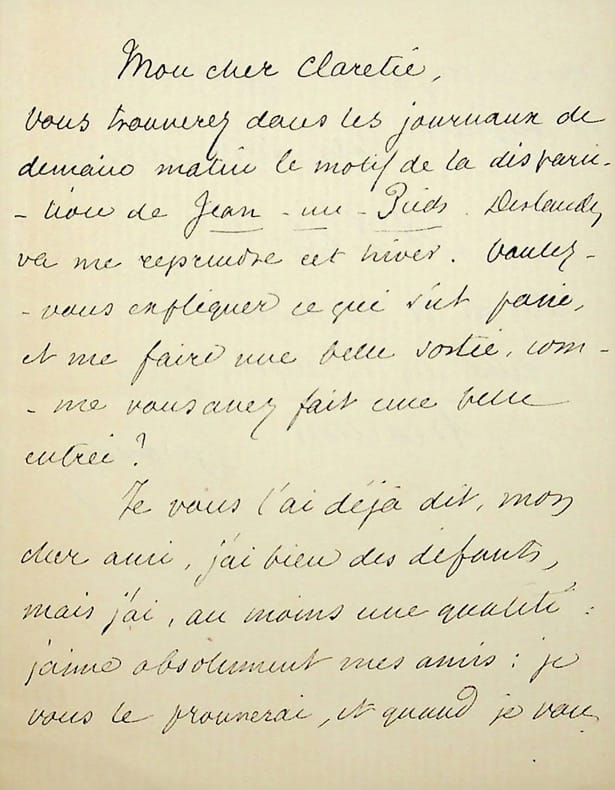 Mon cher Claretie,
vous trouverez dans les journaux de
demain matin le motif de la dispari-
-tion de Jean-nu-Pieds. Deslandes
va me reprendre cet hiver. Voulez-
-vous expliquer ce qui s'est passé,
et me faire une belle sortie, com-
-me vous avez fait une belle
entrée?
Je vous l'ai déjà dit, mon
cher ami, j'ai bien des défauts,
mais j'ai, au moins une qualité:
j'aime absolument mes amis: je
vous le prouverai, et quand je vous